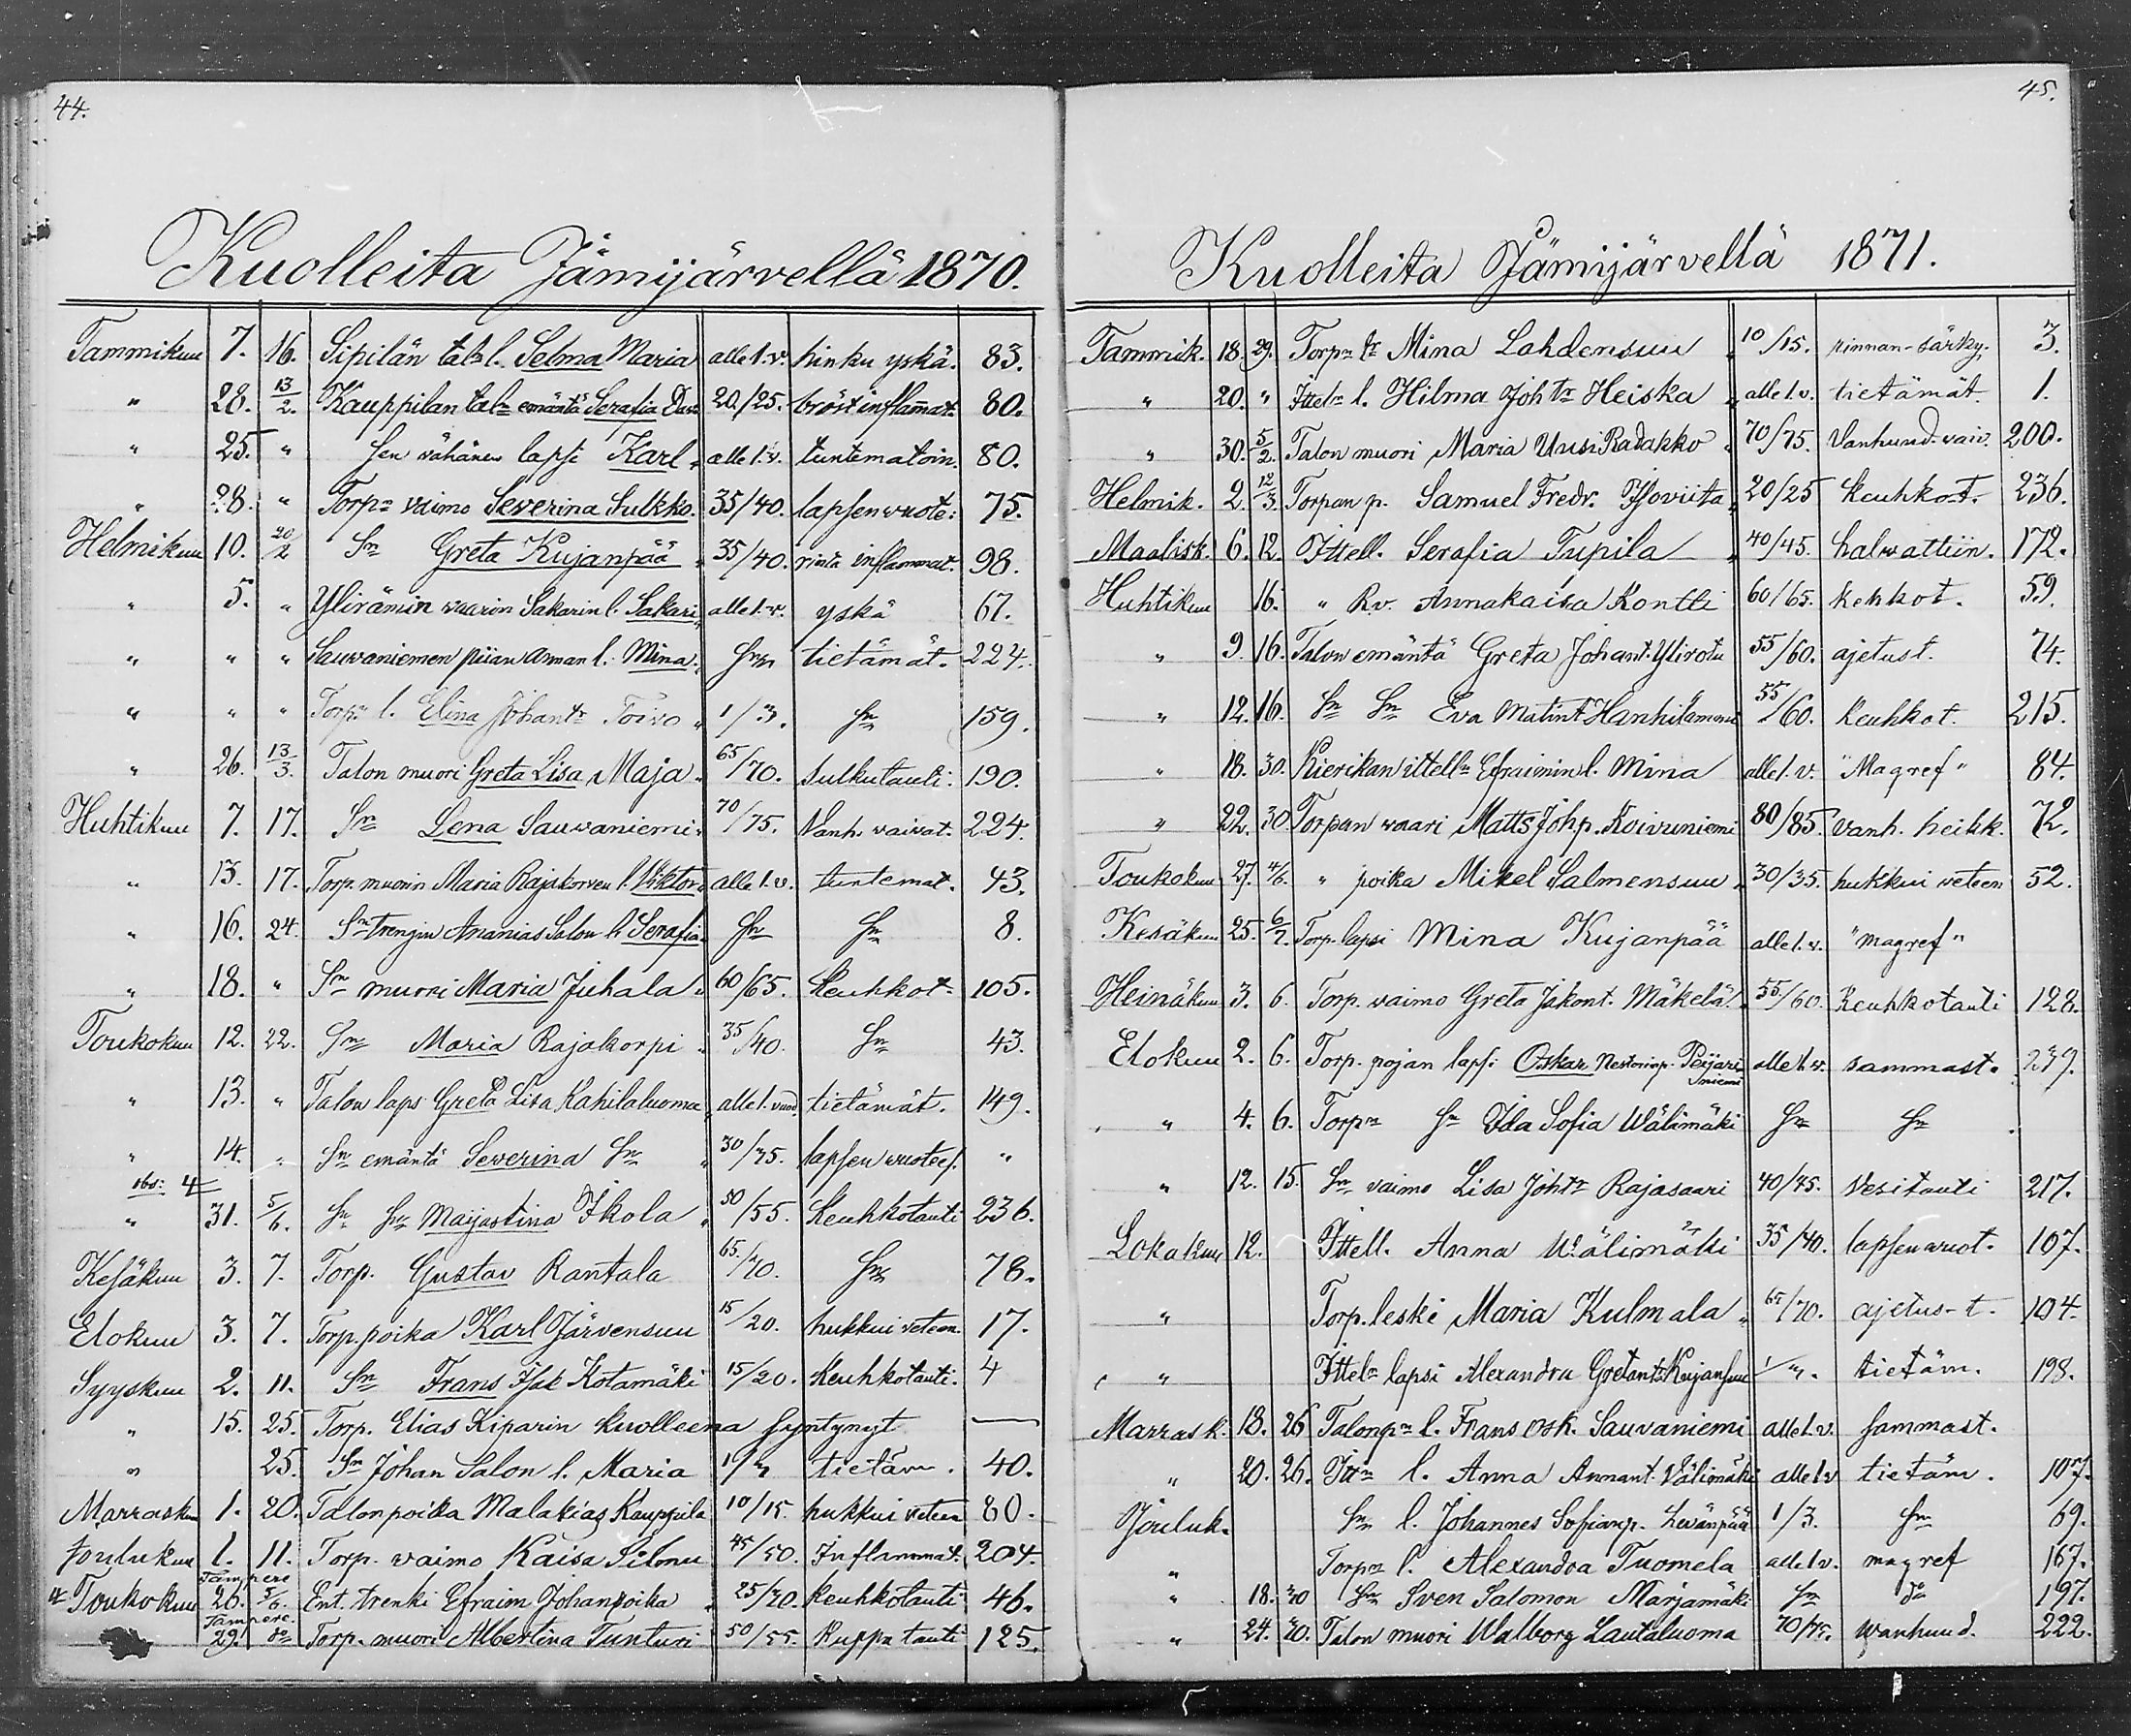 44.
Kuolleita Jämijärvellä 1870.
Tammikuu 7. 16. Sipilän tal: l. Selma Maria alle 1. v. hinku yskä. 83.
" 28. 13/2. Kauppilan tal: emäntä Serafia 20/25. bröstinflammat: 80.
" 25. " Sen vähänen lapsi Karl alle 1. v. tuntematoin. 80.
" 28. " Torp: vaimo Severina Sulkko. 35/40. lapsenvuote: 75.
Helmikuu 10. 20/2 Sn Greta Kujanpää 35/40. rinta inflammat. 98.
" 5. " Ylirämin vaarin Sakarin l. Sakari alle 1. v. yskä 67.
" " " Sauvaniemen piian Annan l. Mina. Sn tietämät. 224.
" " " Torp: l. Elina Johantr Toivo 1/3. Sn 159.
" 26. 13/3. Talon muori Greta Lisa Maja. 65/70. sulkutauti. 190.
Huhtikuu 7. 17. Sn Lena Sauvaniemi 70/75. Vanh. vaivat. 224.
" 13. 17. Torp. muorin Maria Rajakorven l. Viktor alle 1. v. tuntemat. 43.
" 16. 24. Sn trengin Ananias Salon l. Serafia Sn Sn 8.
" 18. " Sn muori Maria Juhala 60/65. Keuhkot. 105.
Toukokuu 12. 22. Sn Maria Rajakorpi 35/40. Sn 43.
" 13. " Talon laps Greta Lisa Kahilaluoma alle 1. vuod. tietämät. 149.
" 14. " Sn emäntä Severina Sn 30/35. lapsenvuotees. "
obs: 4
" 31. 5/6. Sn Sn Maijastina Ikola 50/55. Keuhkotauti 236.
Kesäkuu 3. 7. Torp. Gustav Rantala 65/70. Sn 78.
Elokuu 3. 7. Torp. poika Karl Järvensuu 15/20. hukkui veteen. 17.
Syyskuu 2. 11. Sn Frans Isak Kotamäki 15/20. Keuhkotauti. 4
" 15. 25. Torp. Elias Kiparin kuolleena syntynyt —
" 25. Sn Johan Salon l. Maria 1/3 tietäm. 40.
Marrask 1. 20. Talonpoika Malakias Kauppila 10/15. hukkui veteen 80.
Joulukuu 1. 11. Torp. vaimo Kaisa Silonu 45/50. Inflammat. 204.
Tampere
4 Toukokuu 26. 5/6. Ent. trenki Efraim Johanpoika 25/30. keuhkotauti 46.
Tampere.
29. do Torp. muori Albertina Tunturi 50/55. Kuppa tauti 125.
45.
Kuolleita Jämijärvellä 1871.
Tammik. 18. 29. Torp: tr Mina Lahdensuu 10/15. rinnan-särky. 3.
" 20. " Ittel: l. Hilma Joh tr Heiska alle 1. v. tietämät. 1.
" 30. 5/2. Talon muori Maria Uusi Radakko 70/75. Vanhuud. vaiv. 200.
Helmik. 2. 12/3. Torpan p. Samuel Fredr. Isoviita 20/25 keuhkot. 236.
Maalisk. 6. 12. Ittell. Serafia Tupila 40/45. halvattiin. 172.
Huhtikuu 16. " Rv. Annakaisa Kontti 60/65. kehkot. 59.
" 9. 16. Talon emäntä Greta Johant. Ylirotu 55/60. ajetust. 74.
" 12. 16. Sn Sn Eva Matint Hanhilammi 55/60. Keuhkot. 215.
" 18. 30. Kierikan ittell: Efraimin l. Mina alle 1. v. "Magref" 84.
" 22. 30. Torpan vaari Matts Joh p. Koivuniemi 80/85. vanh. heikk. 72.
Toukokuu 27. 4/6. " poika Mikel Salmensuu 30/35. hukkui veteen 52.
Kesäkuu 25. 6/7. Torp. lapsi Mina Kujanpää alle 1. v. "magref"
Heinäkuu 3. 6. Torp. vaimo Greta Jakont. Mäkelä 55/60. Keuhkotauti 128.
Elokuu 2. 6. Torp. pojan lapsi Oskar Nestorinp. Peijariniemi alle 1. v. sammast. 239.
" 4. 6. Torp: Sn Ida Sofia Wälimäki Sn Sn
" 12. 15. Sn vaimo Lisa Johtr Rajasaari 40/45. Vesitauti 217.
Lokakuu 12. Ittell. Anna Wälimäki 35/40. lapsenvuot. 107.
" Torp. leski Maria Kulmala 65/70. ajetus-t. 104.
" Ittel: lapsi Alexandra Gretant: Kujansuu 1/3. tietäm. 198.
Marrask. 18. 26 Talonp: l. Frans Osk. Sauvaniemi alle 1. v. sammast.
" 20. 26. Itt: l. Anna Annant. Välimäki alle 1 v tietäm. 107.
Jouluk. Sn l. Johannes Sofianp. Levänpää 1/3. Sn 69.
" Torp: l. Alexandra Tuomela alle 1 v. magref 167.
" 18. 30 Sn Sven Salomon Marjamäki Sn do 197.
" 24. 30. Talon muori Walborg Lautaluoma 70/75. wanhuud. 222.